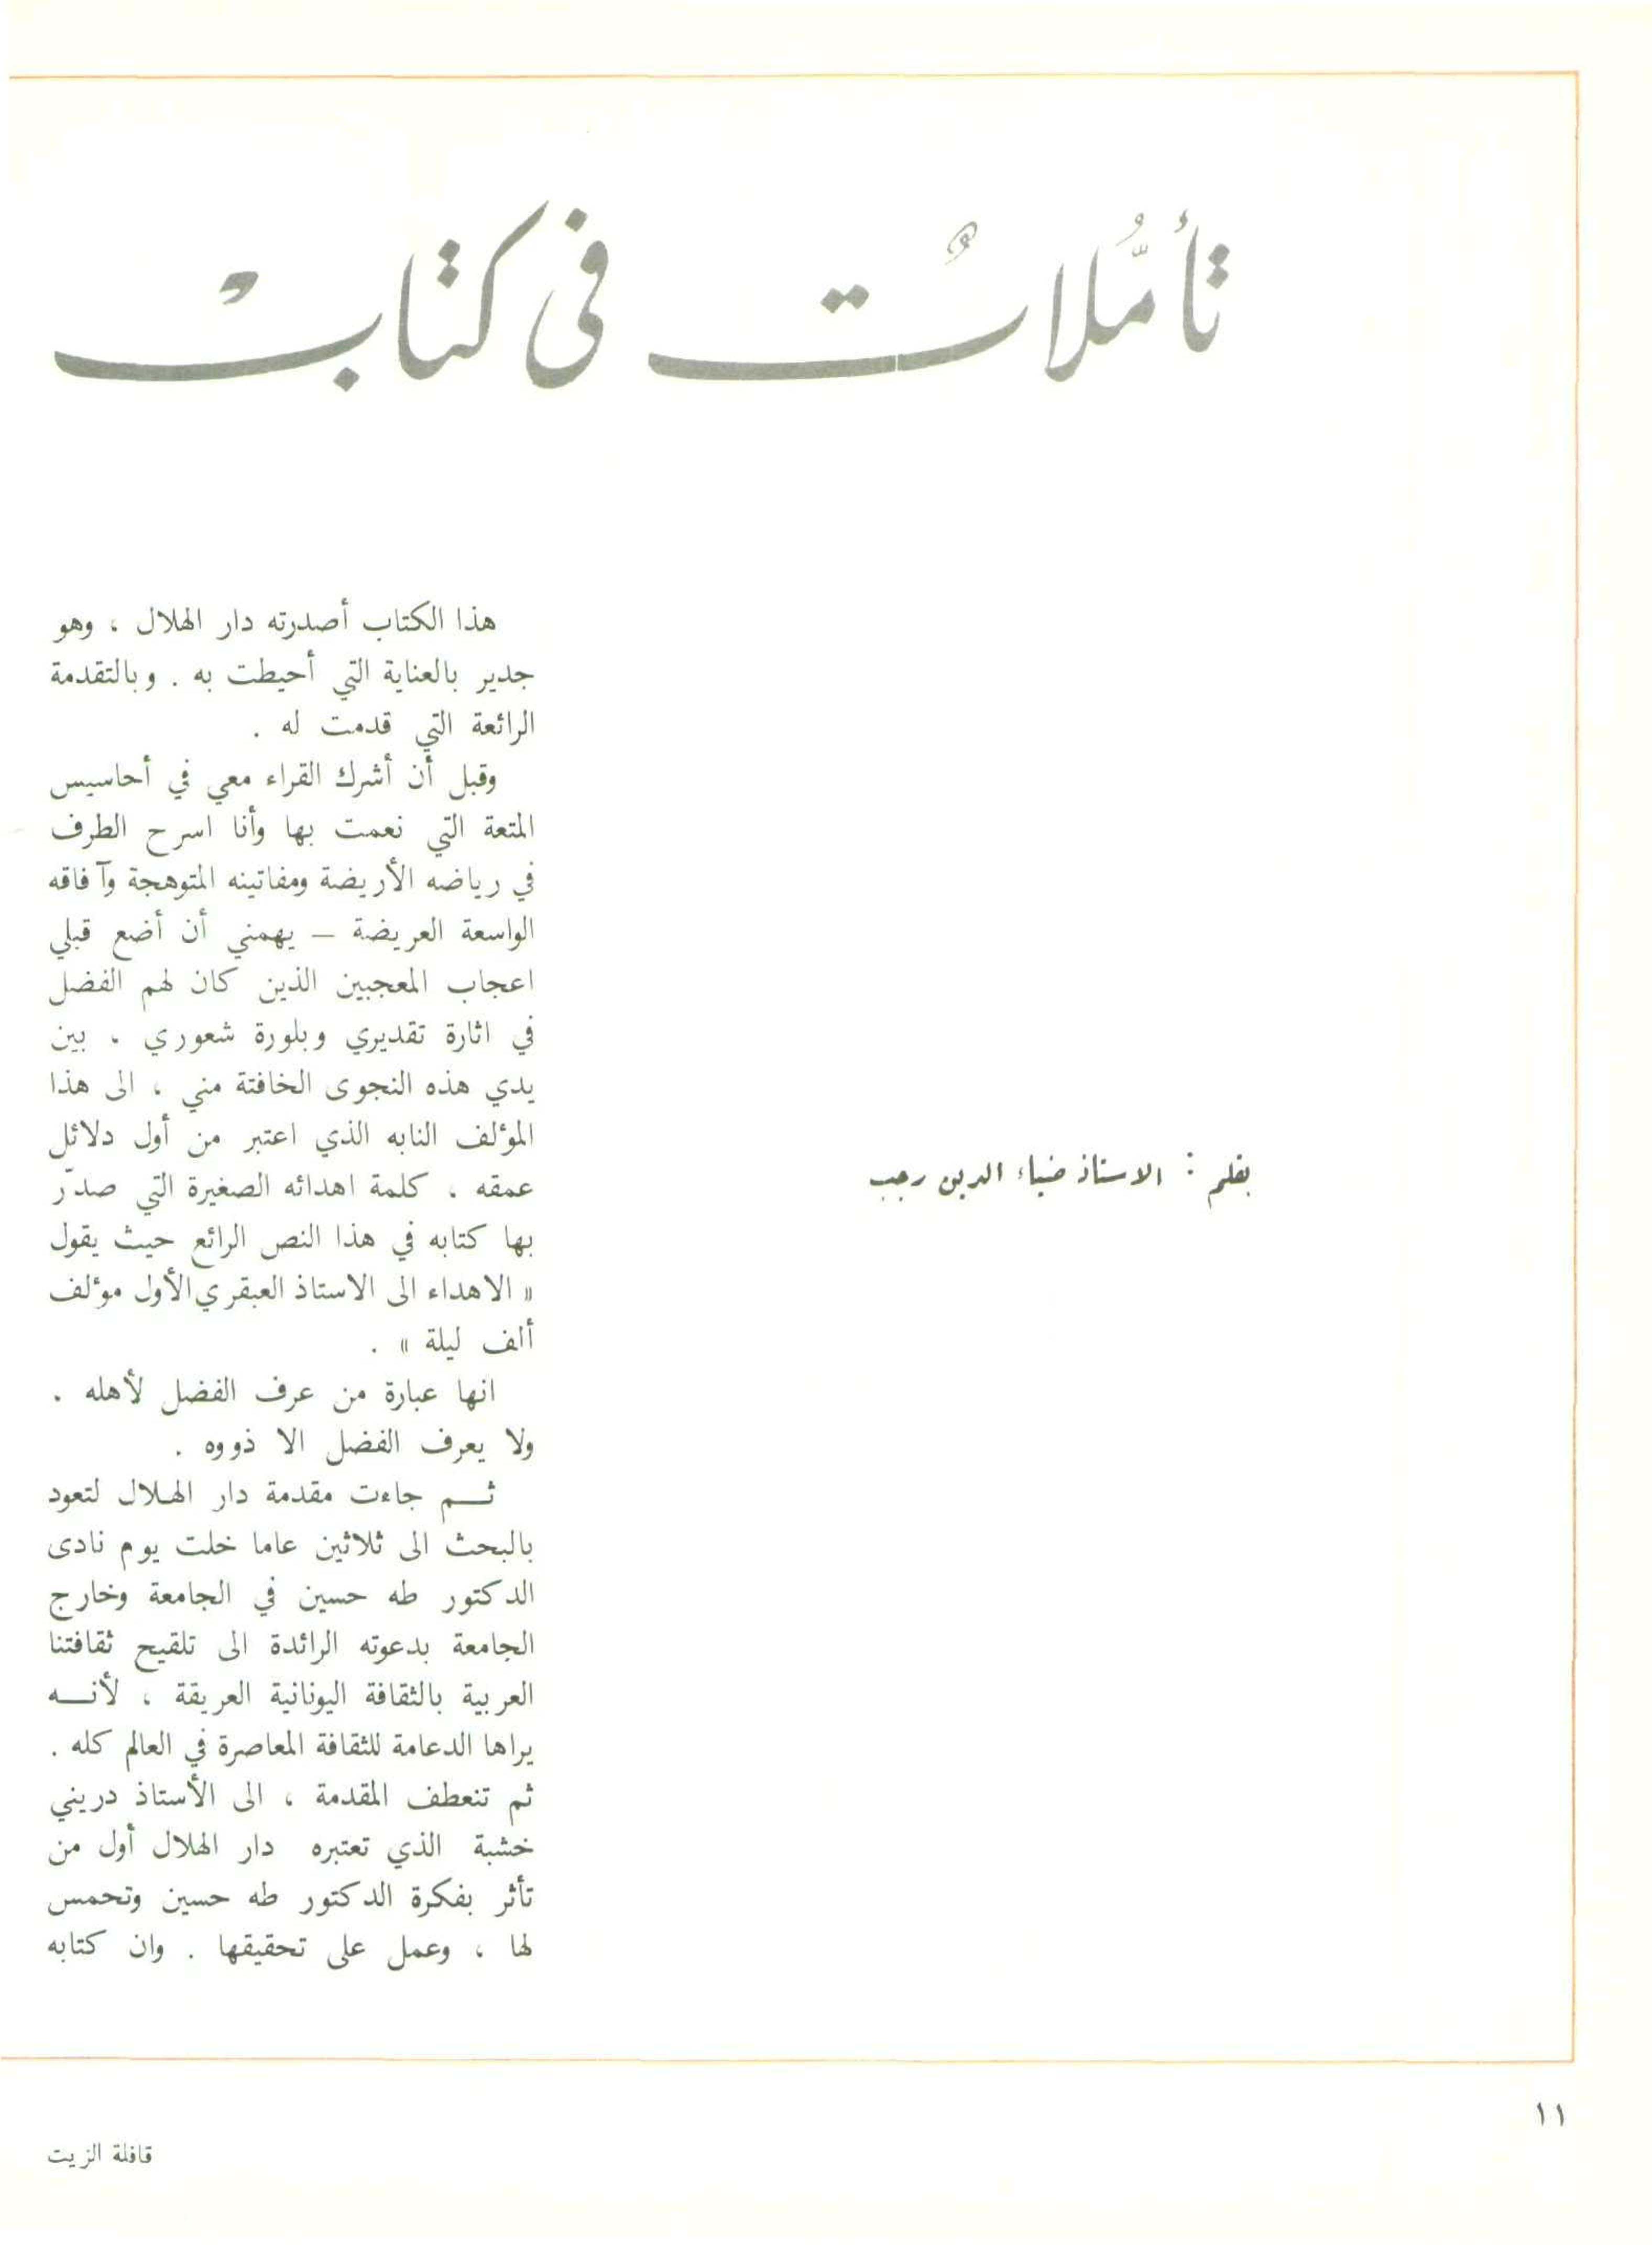 تأمُّلاتٌ في كتابْ
بقلم : الاستاذ ضياء الدين رجب
هذا الكتاب أصدرته دار الهلال ، وهو
جدير بالعناية التي أحيطت به . وبالتقدمة
الرائعة التي قدمت له .
وقبل أن أشرك القراء معي في أحاسيس
المتعة التي نعمت بها وأنا اسرح الطرف
في رياضه الأريضة ومفاتينه المتوهجة وآفاقه
الواسعة العريضة – يهمني أن أضع قبلي
اعجاب المعجبين الذين كان لهم الفضل
في اثارة تقديري وبلورة شعوري ، بين
يدي هذه النجوى الخافتة مني ، الى هذا
المؤلف النابه الذي اعتبر من أول دلائل
عمقه ، كلمة اهدائه الصغيرة التي صدّر
بها كتابه في هذا النص الرائع حيث يقول
« الاهداء الى الاستاذ العبقري الأول مؤلف
ألف ليلة » .
انها عبارة من عرف الفضل لأهله .
ولا يعرف الفضل الا ذووه .
ثــم جاءت مقدمة دار الهلال لتعود
بالبحث الى ثلاثين عاما خلت يوم نادى
الدكتور طه حسين في الجامعة وخارج
الجامعة بدعوته الرائدة الى تلقيح ثقافتنا
العربية بالثقافة اليونانية العريقة ، لأنــه
يراها الدعامة للثقافة المعاصرة في العالم كله .
ثم تنعطف المقدمة ، الى الأستاذ دريني
خشبة الذي تعتبره دار الهلال أول من
تأثر بفكرة الدكتور طه حسين وتحمس
لها ، وعمل على تحقيقها . وان كتابه
١١
قافلة الزيت